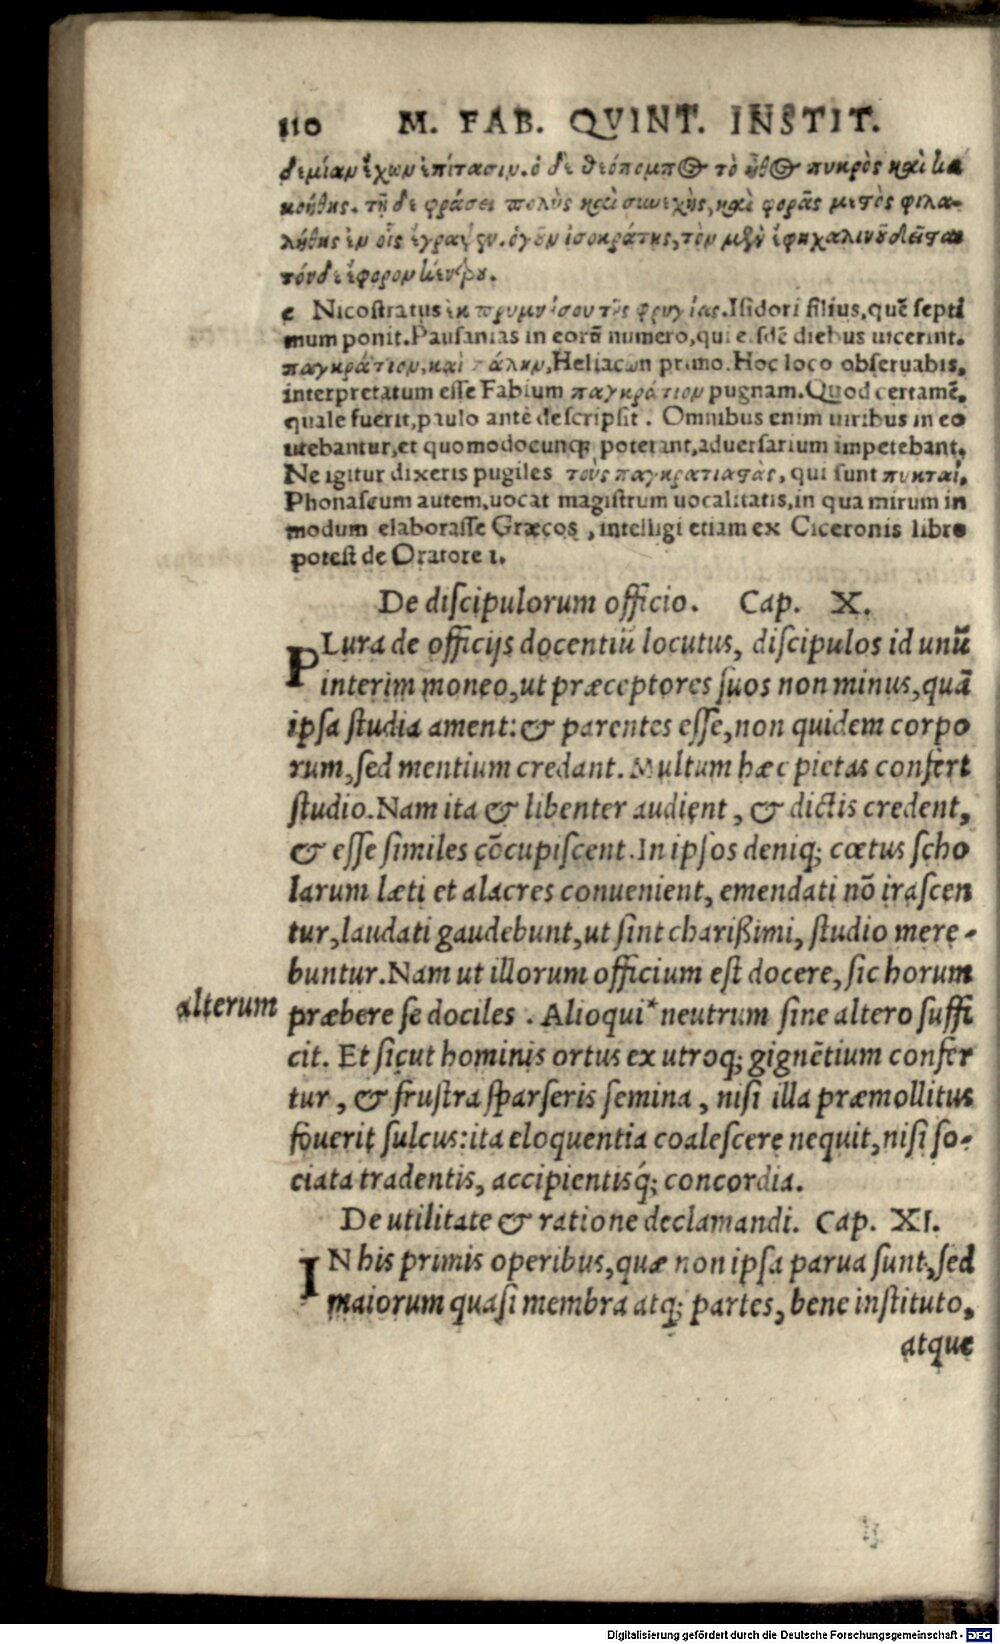 110 M. FAB. QVINT. INSTIT.
δεμίαν ἔχων ἐπίτασιν. ὁ δὲ θεόπομπος τὸ ἦθος πικρὸς καὶ κα
κοήθης. τῇ δὲ φράσει πολὺς καὶ συνεχὴς, καὶ φορᾶς μεστὸς φιλα-
λήθης ἐν οἷς ἔγραψεν. ὁ γοῦν ἰσοκράτης, τὸν μὲν ἔφη χαλινοῦ δεῖσθαι
τὸν δὲ ἔφορον κέντρου.
c Nicostratus ἐκ πρυμνήσου τῆς φρυγίας. Isidori filius, quē septi
mum ponit. Pausanias in eorū numero, qui eisdē diebus uicerint.
παγκράτιον, καὶ πάλην, Heliacωn primo. Hoc loco obseruabis,
interpretatum esse Fabium παγκράτιον pugnam. Quod certamē,
quale fuerit, paulo antè descripsit. Omnibus enim uiribus in eo
utebantur, et quomodocunq; poterant, aduersarium impetebant.
Ne igitur dixeris pugiles τοὺς παγκρατιαστὰς, qui sunt πυκταί.
Phonascum autem, uocat magistrum uocalitatis, in qua mirum in
modum elaborasse Græcos, intelligi etiam ex Ciceronis libro
potest de Oratore 1.
De discipulorum officio. Cap. X.
PLura de officijs docentiū locutus, discipulos id unū
interim moneo, ut præceptores suos non minus, quā
ipsa studia ament: & parentes esse, non quidem corpo
rum, sed mentium credant. Multum hæc pietas confert
studio. Nam ita & libenter audient, & dictis credent,
& esse similes cōcupiscent. In ipsos deniq; cœtus scho
larum læti et alacres conuenient, emendati nō irascen
tur, laudati gaudebunt, ut sint charißimi, studio mere-
buntur. Nam ut illorum officium est docere, sic horum
alterum præbere se dociles. Alioqui* neutrum sine altero suffi
cit. Et sicut hominis ortus ex utroq; gignētium confer
tur, & frustra sparseris semina, nisi illa præmollitus
fouerit sulcus: ita eloquentia coalescere nequit, nisi so-
ciata tradentis, accipientisq́; concordia.
De utilitate & ratione declamandi. Cap. XI.
IN his primis operibus, quæ non ipsa parua sunt, sed
maiorum quasi membra atq; partes, bene instituto,
atque
Digitalisierung gefördert durch die Deutsche Forschungsgemeinschaft - DFG